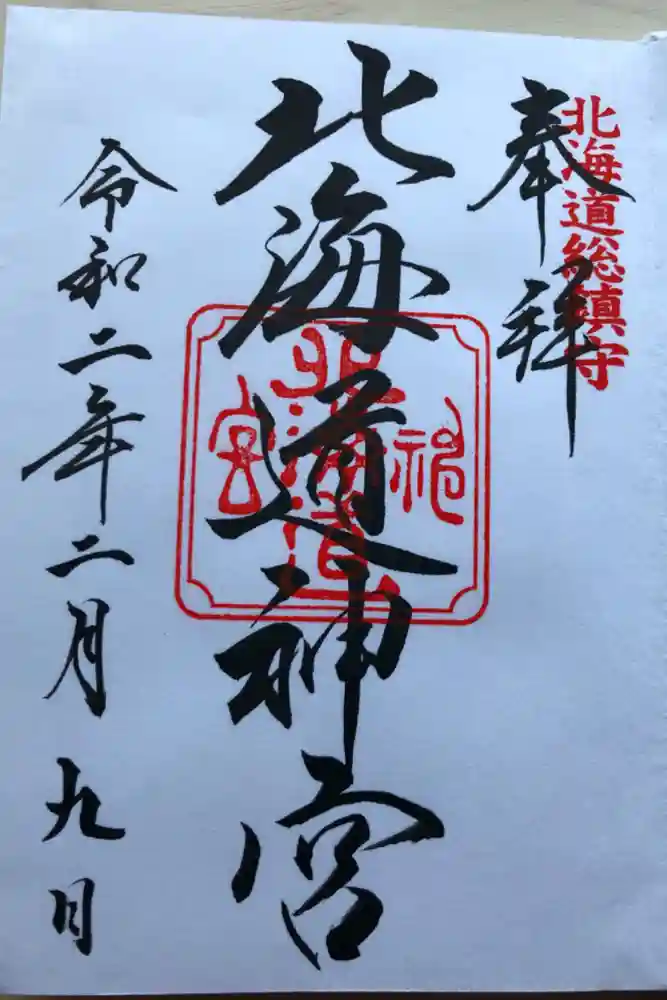 北海道総鎮守
奉拝
北海道神宮
北海道神宮
令和二年二月九日